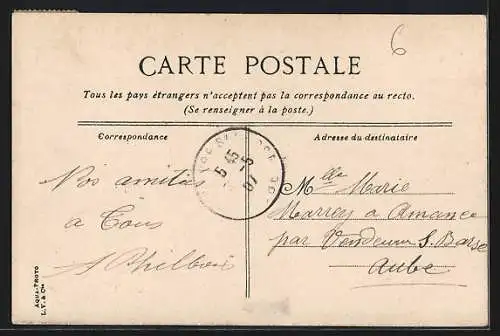 6
CARTE POSTALE
Tous les pays étrangers n'acceptent pas la correspondance au recto.
(Se renseigner à la poste.)
Correspondance
Adresse du destinataire
5 45
5-5
07
Nos amitiés
à Tous
Mlle Marie
à Amance
par Vendeuvre S. Barse
Aube
AQUA-PHOTO
L. V. & Cie